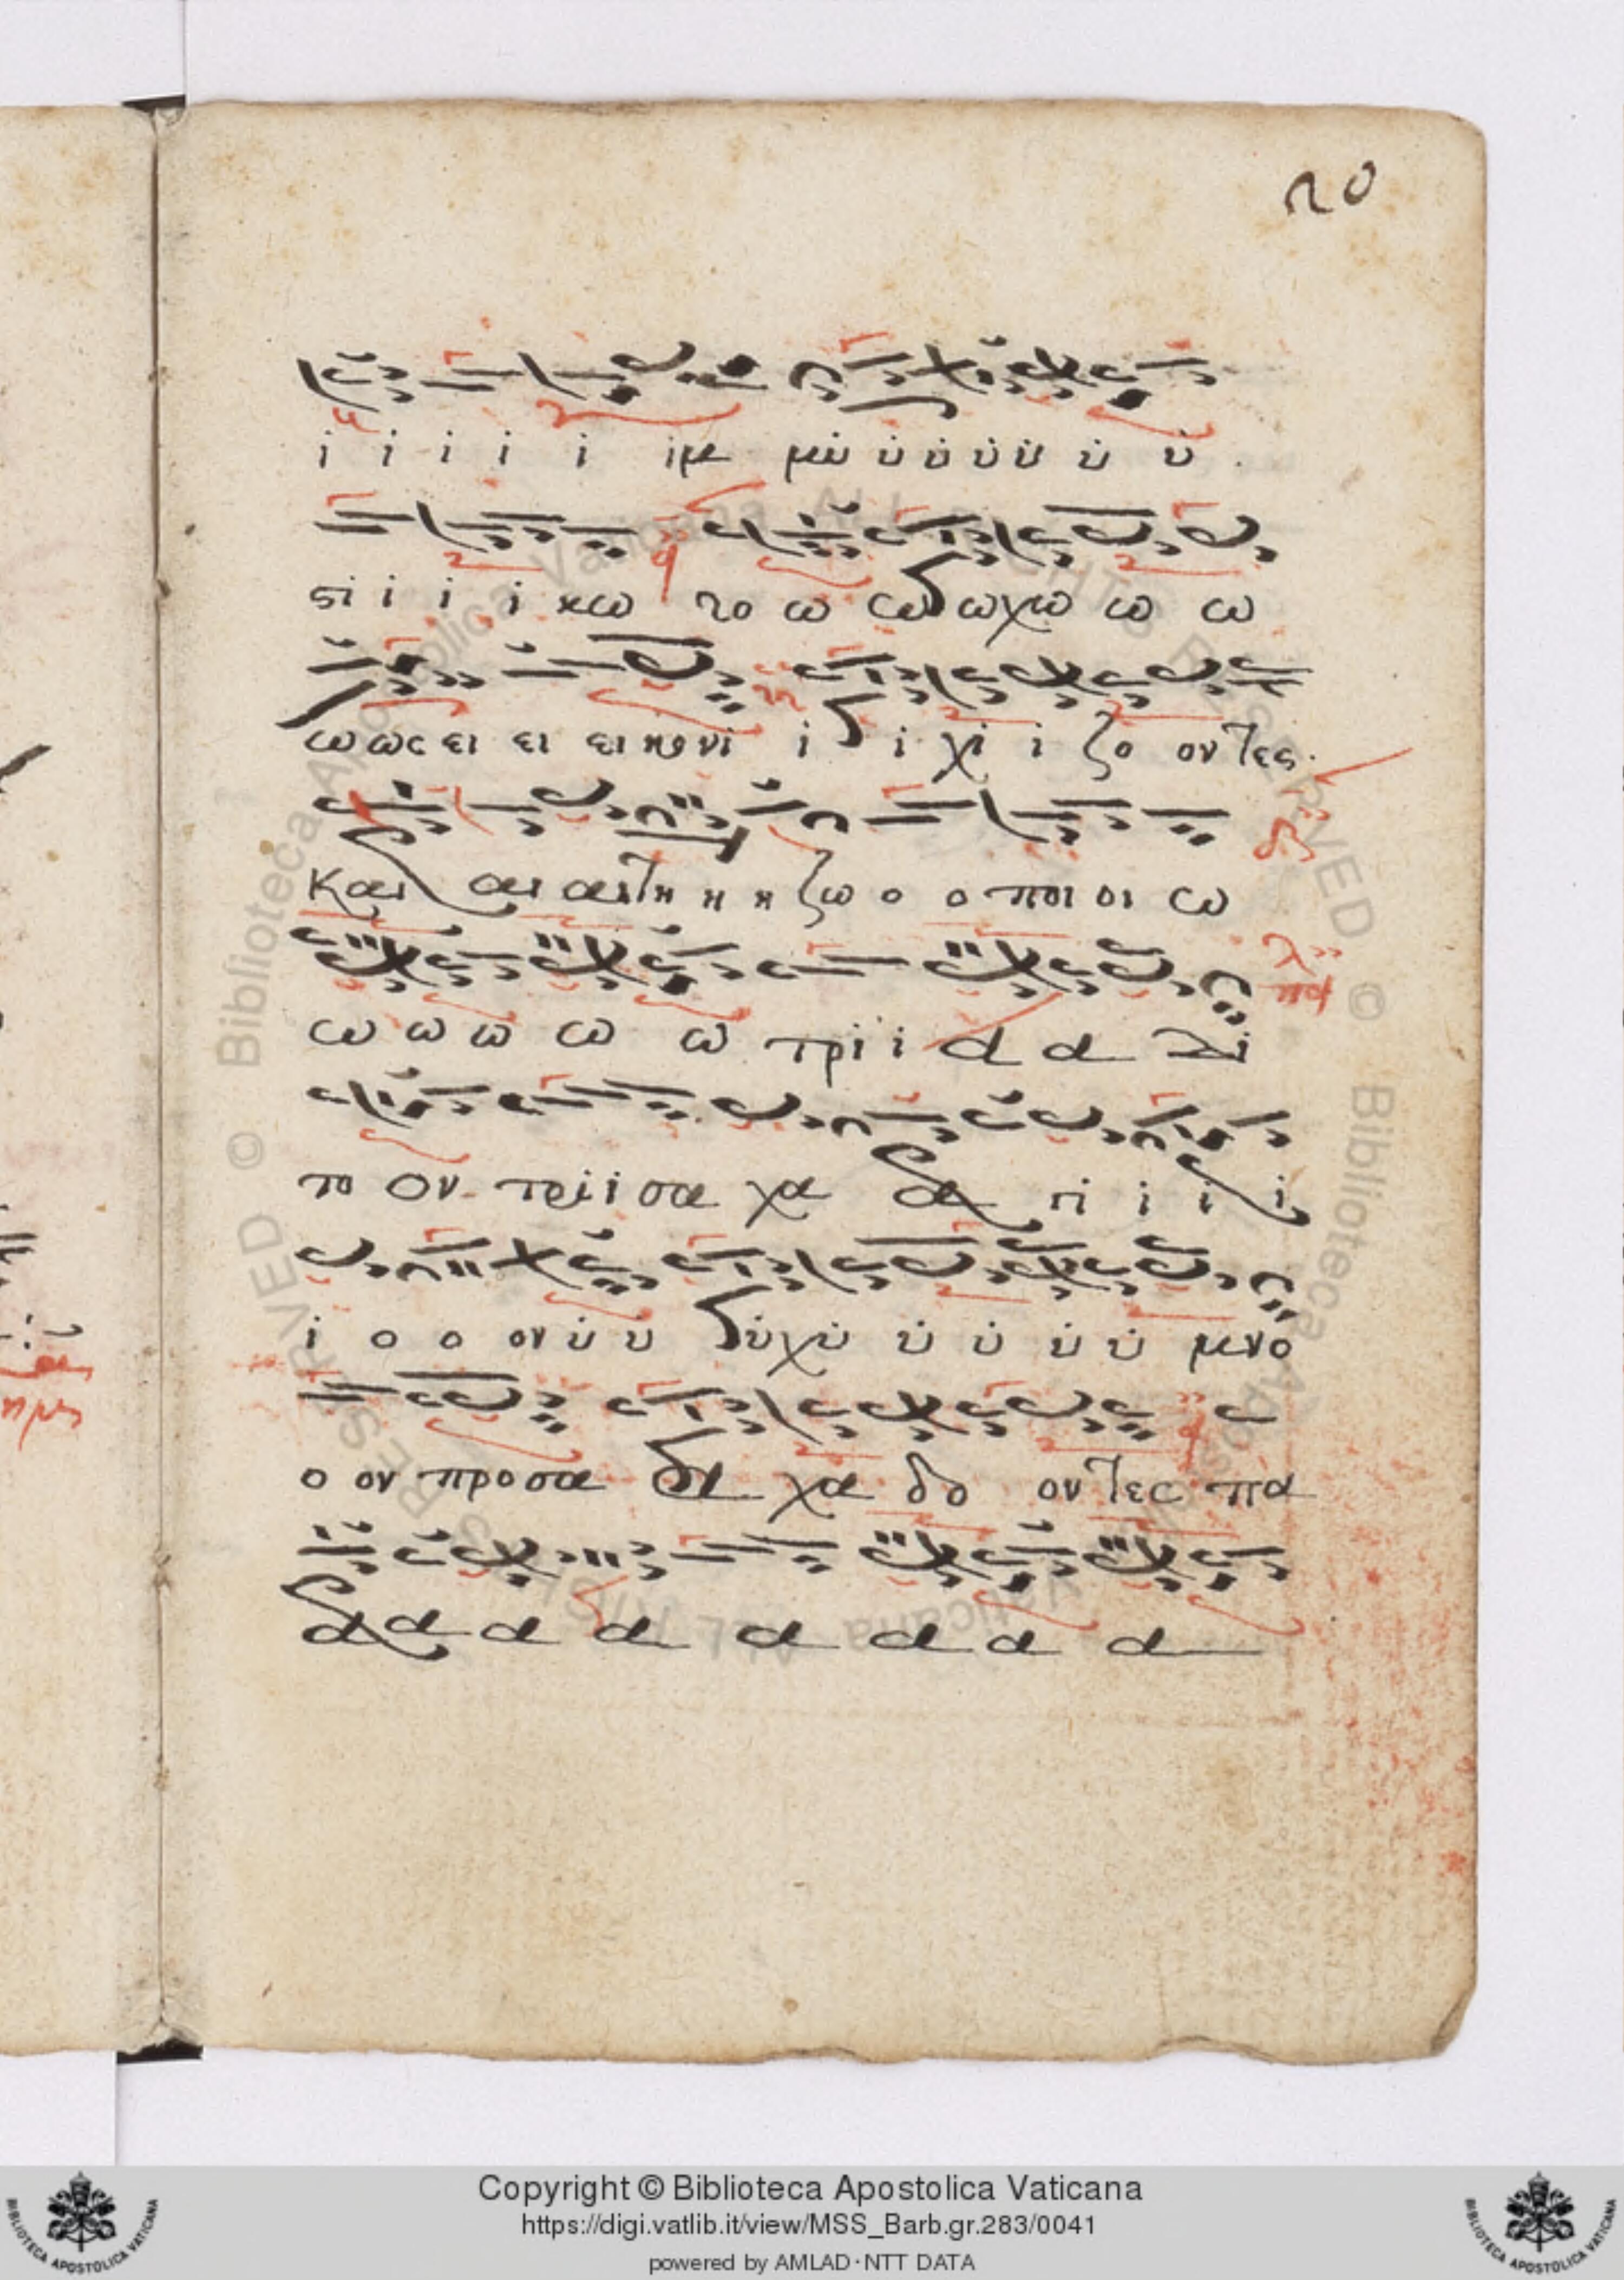 20
ι ι ι ι ι ιμε μυ υ υ υ υ υ υ
στι ι ι ι κω το ω ω δωχω ω ω
ω ως ει ει εικονι ι δι χι ι ζο οντες
και αι αι τη η η ζω ο ο ποι οι ω
ω ω ω ω ω τρι ι α α δι
το ον τρι ι σα χα α γι ι ι ι
ι ο ο ον υ υ δυχυ υ υ υ υ μνο
ο ον προσα δα χα δο οντες πα
α α α α α α α α
Copyright © Biblioteca Apostolica Vaticana
https://digi.vatlib.it/view/MSS_Barb.gr.283/0041
powered by AMLAD·NTT DATA